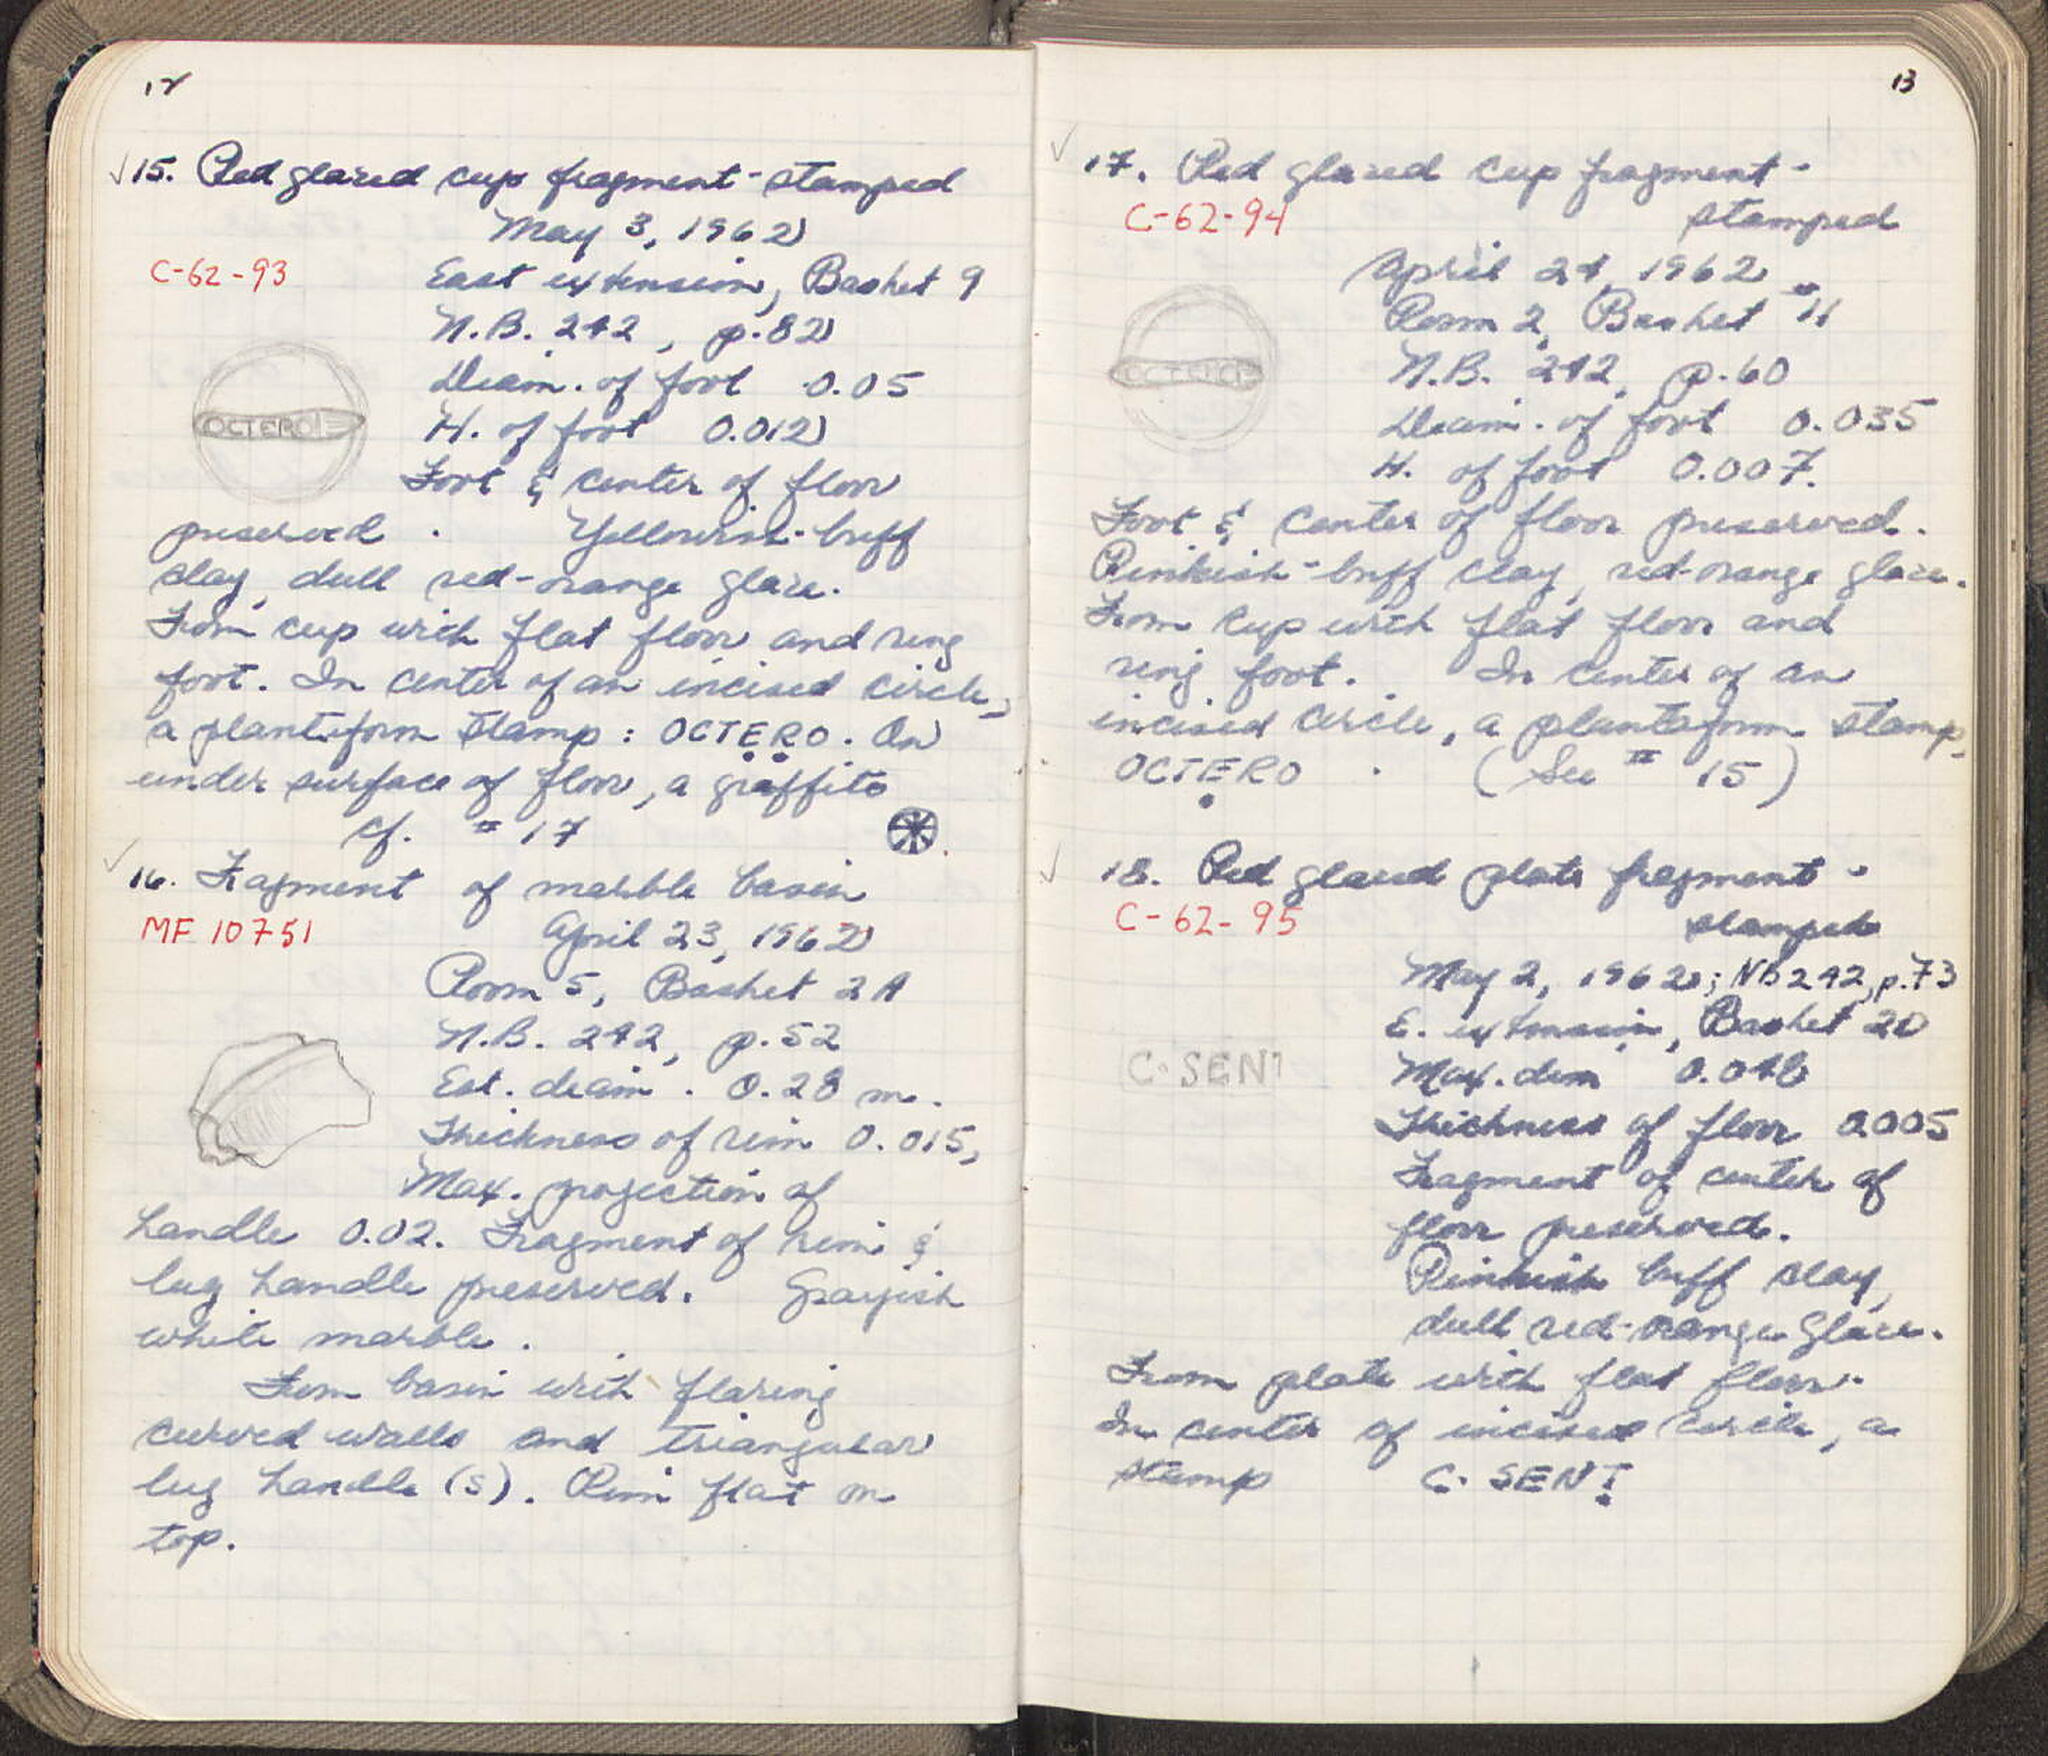 12
15. Red glazed cup fragment - stamped
May 3, 1962
C-62-93
East extension, Basket 9
N.B. 242, p. 82
Diam. of foot 0.05
OCTERO
H. of foot 0.012
Foot & center of floor
preserved. Yellowish-buff
clay, dull red-orange glaze.
From cup with flat floor and ring
foot. In center of an incised circle,
a plantiform stamp: OCTẸṚO. On
under surface of floor, a graffito
cf. # 17
16. Fragment of marble basin
MF 10751
April 23, 1962
Room 5, Basket 2A
N.B. 242, p. 52
Est. diam. 0.28 m.
Thickness of rim 0.015,
Max. projection of
handle 0.02. Fragment of rim &
lug handle preserved. Grayish
white marble.
From basin with flaring
curved walls and triangular
lug handle (s). Rim flat on
top.
13
17. Red glazed cup fragment -
C-62-94
stamped
April 24, 1962
Room 2, Basket # 11
N.B. 242, p. 60
OCTERO
Diam. of foot 0.035
H. of foot 0.007.
Foot & center of floor preserved.
Pinkish-buff clay, red-orange glaze.
From cup with flat floor and
ring foot. In center of an
incised circle, a plantaform stamp,
OCTẸRO. (See # 15)
18. Red glazed plate fragment -
C-62-95
stamped
May 2, 1962; NB 242, p. 73
E. extension, Basket 20
C. SENT
Max. dim 0.046
Thickness of floor 0.005
Fragment of center of
floor preserved.
Pinkish buff clay,
dull red-orange glaze.
From plate with flat floor.
In center of incised circle, a
stamp C. SENṬ